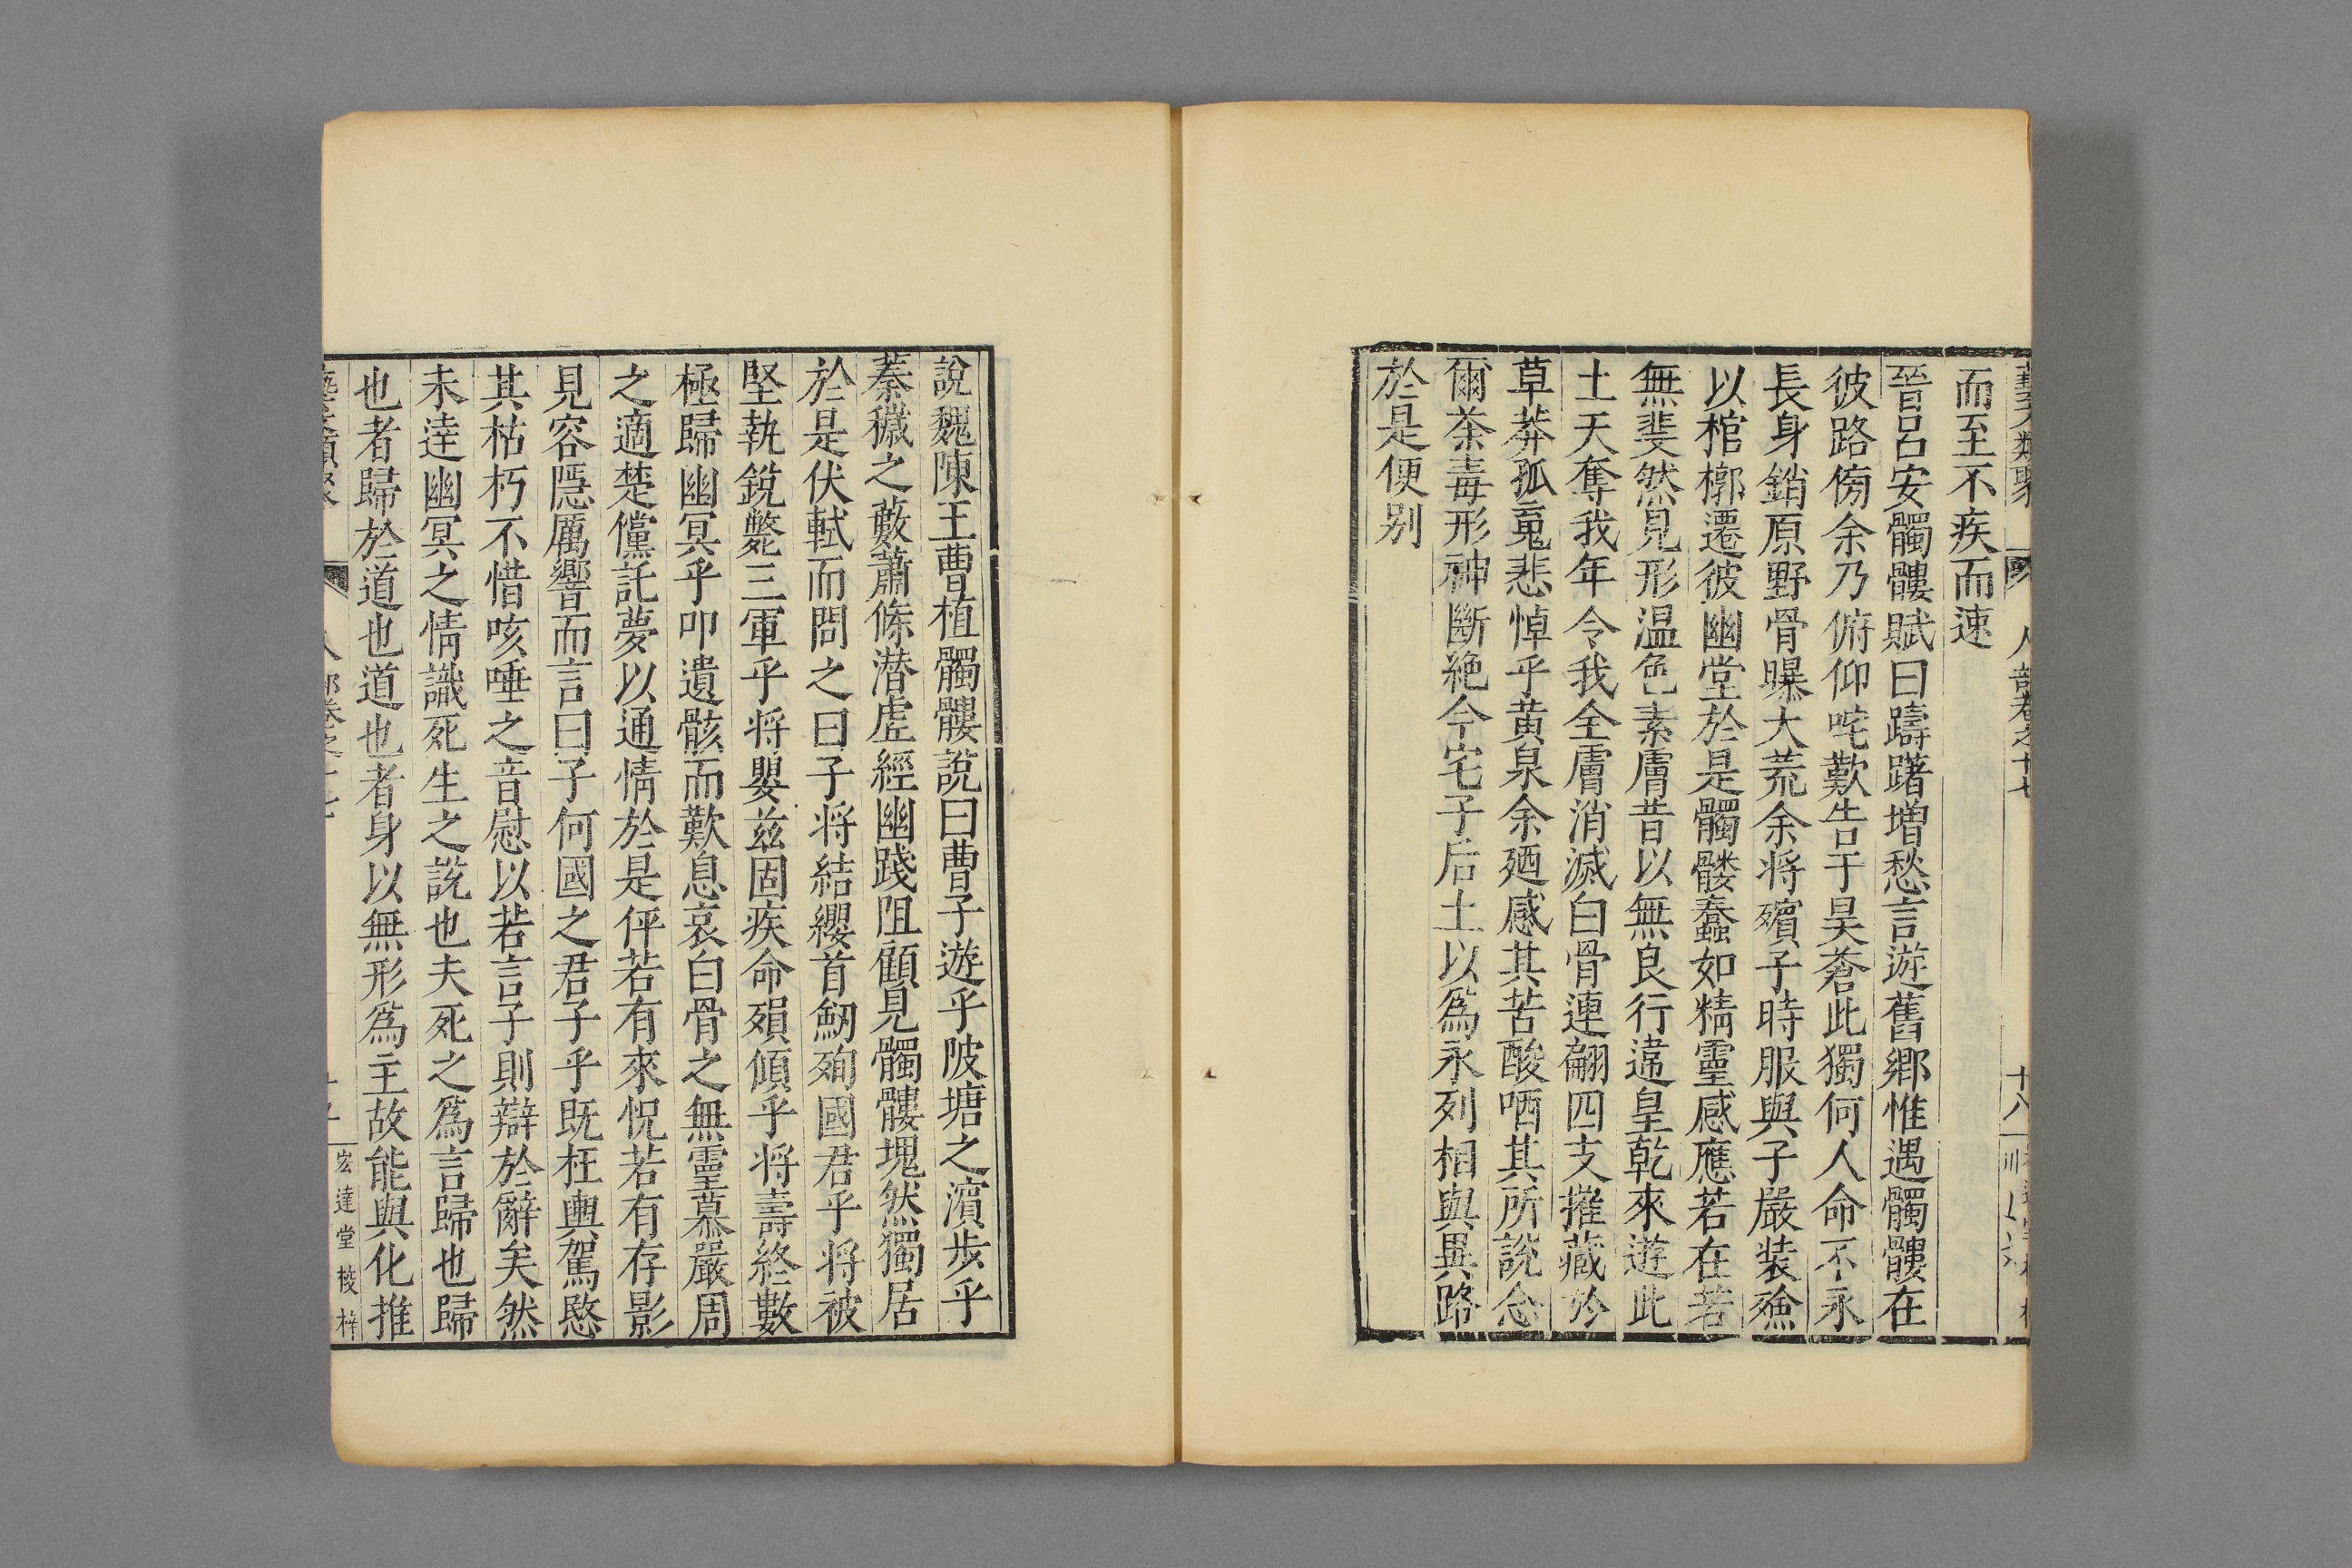 藝文類聚 人部卷之十七 十八
而至不疾而速
晉呂安髑髏賦曰躊躇增愁言遊舊鄉惟遇髑髏在
彼路傍余乃俯仰咤歎告于昊蒼此獨何人命不永
長身銷原野骨曝大荒余將殯子時服與子嚴裝殮
以棺槨遷彼幽堂於是髑髏蠢如精靈感應若在若
無斐然見形温色素膚昔以無良行違皇乾來遊此
土天奪我年令我全膚消滅白骨連翩四支摧藏於
草莽孤䰟悲悼乎黄泉余廼感其苦酸哂其所說念
爾荼毒形神斷絶今宅子后土以爲永列相與異路
於是便别
說魏陳王曹植髑髏說曰曹子遊乎陂塘之濱步乎
蓁穢之藪蕭條潜虗經幽踐阻顧見髑髏塊然獨居
於是伏軾而問之曰子将結纓首劒殉國君乎将被
堅執銳斃三軍乎将嬰兹固疾命殞傾乎将壽終數
極歸幽冥乎叩遺骸而歎息哀白骨之無靈慕嚴周
之適楚儻託夢以通情於是伻若有來怳若有存影
見容隱厲響而言曰子何國之君子乎既枉輿駕愍
其枯朽不惜咳唾之音慰以若言子則辯於辭矣然
未逹幽冥之情識死生之說也夫死之爲言歸也歸
也者歸於道也道也者身以無形爲主故能與化推
宏達堂校梓